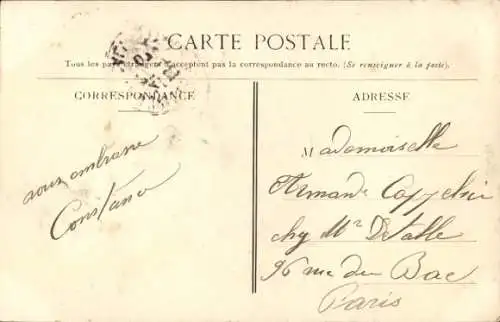 CARTE POSTALE
Tous les pays étrangers n'acceptent pas la correspondance au recto. (Se renseigner à la poste).
CORRESPONDANCE
vous embrasse
Constance
ADRESSE
Mademoiselle
Armande
chez Mr
96 rue du Bac
Paris